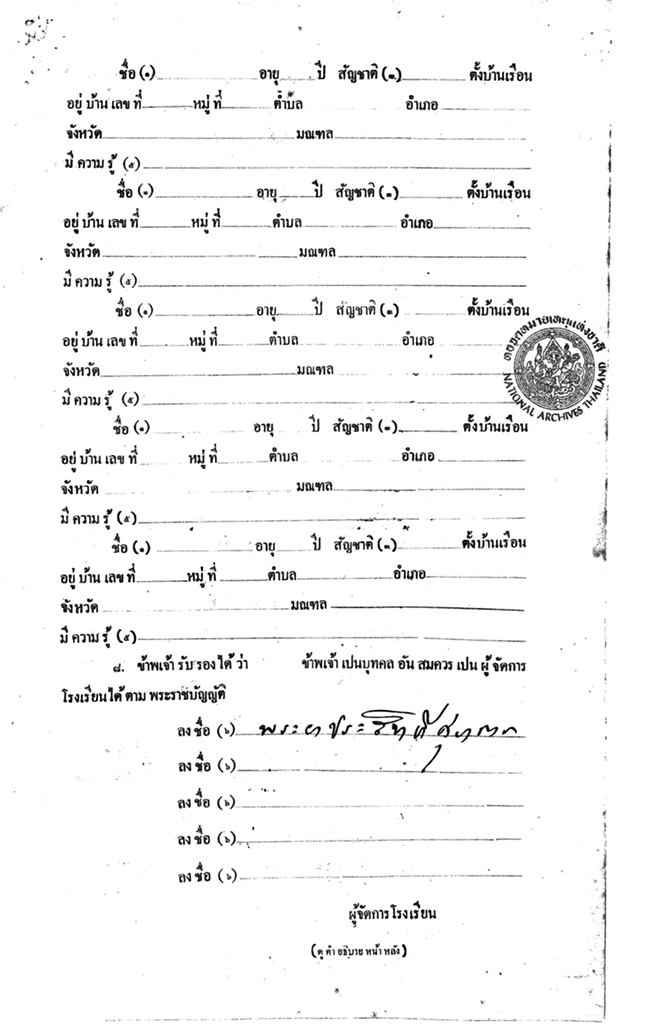 ชื่อ (๑) อายุ ปี สัญชาติ (๓) ตั้งบ้านเรือน
อยู่ บ้าน เลข ที่ หมู่ ที่ ตำบล อำเภอ
จังหวัด มณฑล
มี ความ รู้ (๕)
ชื่อ (๑) อายุ ปี สัญชาติ (๓) ตั้งบ้านเรือน
อยู่ บ้าน เลข ที่ หมู่ ที่ ตำบล อำเภอ
จังหวัด มณฑล
มี ความ รู้ (๕)
ชื่อ (๑) อายุ ปี สัญชาติ (๓) ตั้งบ้านเรือน
อยู่ บ้าน เลข ที่ หมู่ ที่ ตำบล อำเภอ
จังหวัด มณฑล
หอจดหมายเหตุแห่งชาติ
NATIONAL ARCHIVES THAILAND
มี ความ รู้ (๕)
ชื่อ (๑) อายุ ปี สัญชาติ (๓) ตั้งบ้านเรือน
อยู่ บ้าน เลข ที่ หมู่ ที่ ตำบล อำเภอ
จังหวัด มณฑล
มี ความ รู้ (๕)
ชื่อ (๑) อายุ ปี สัญชาติ (๓) ตั้งบ้านเรือน
อยู่ บ้าน เลข ที่ หมู่ ที่ ตำบล อำเภอ
จังหวัด มณฑล
มี ความ รู้ (๕)
๘. ข้าพเจ้า รับ รอง ได้ ว่า ข้าพเจ้า เปนบุทคล อัน สมควร เปน ผู้ จัดการ
โรงเรียน ได้ ตาม พระราชบัญญัติ
ลง ชื่อ (๖) พระยาประสิทธิ์ศุภการ
ลง ชื่อ (๖)
ลง ชื่อ (๖)
ลง ชื่อ (๖)
ลง ชื่อ (๖)
ผู้จัดการ โรงเรียน
(ดู คำ อธิบาย หน้า หลัง)